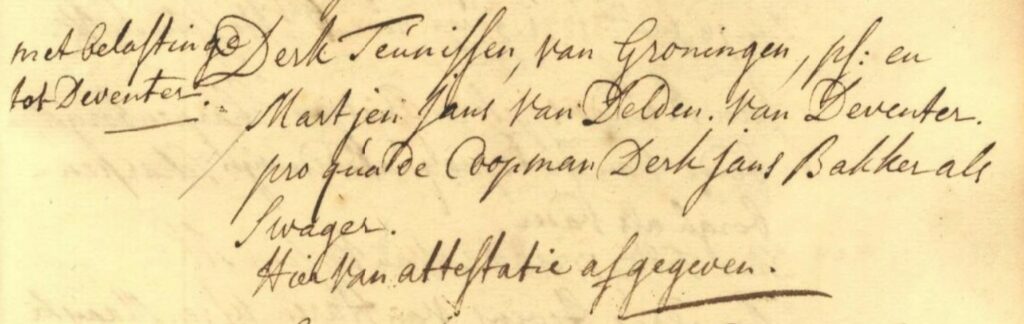 met belastinge
tot Deventer.
Derk Teúnissen, van Groningen, ps: en
Martjen Jans van Delden. van Deventer.
pro qúa de Coopman Derk Jans Bakker als
Swager.
Hier van attestatie afgegeven.